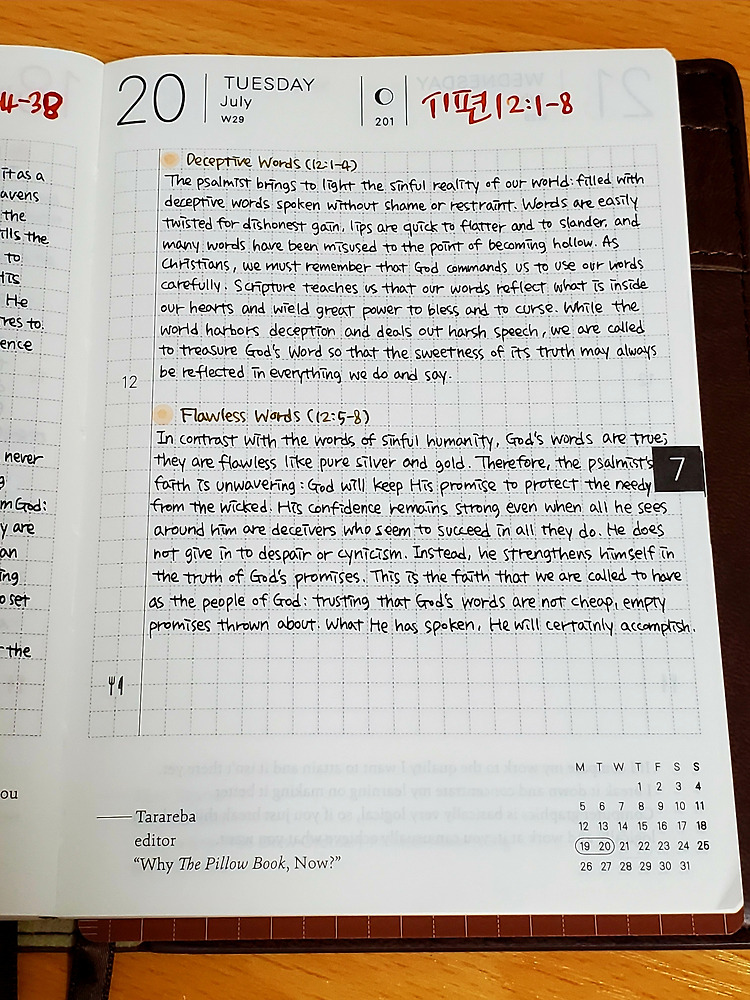 4-38
it as a
avens
the
ills the
to
His
He
res to
ence
never
m God:
y are
an
ing
o set
the
ou
20
TUESDAY
July
W29
201
시편 12:1-8
Deceptive Words (12:1-4)
The psalmist brings to light the sinful reality of our world: filled with
deceptive words spoken without shame or restraint. Words are easily
twisted for dishonest gain, lips are quick to flatter and to slander, and
many words have been misused to the point of becoming hollow. As
Christians, we must remember that God commands us to use our words
carefully. Scripture teaches us that our words reflect what is inside
our hearts and wield great power to bless and to curse. While the
world harbors deception and deals out harsh speech, we are called
to treasure God's Word so that the sweetness of its truth may always
be reflected in everything we do and say.
12
Flawless Words (12:5-8)
In contrast with the words of sinful humanity, God's words are true;
they are flawless like pure silver and gold. Therefore, the psalmist's
7
faith is unwavering: God will keep His promise to protect the needy
from the wicked. His confidence remains strong even when all he sees
around him are deceivers who seem to succeed in all they do. He does
not give in to despair or cynicism. Instead, he strengthens himself in
the truth of God's promises. This is the faith that we are called to have
as the people of God: trusting that God's words are not cheap, empty
promises thrown about. What He has spoken, He will certainly accomplish.
Tarareba
editor
"Why The Pillow Book, Now?"
M T W T F S S
1 2 3 4
5 6 7 8 9 10 11
12 13 14 15 16 17 18
19 20 21 22 23 24 25
26 27 28 29 30 31